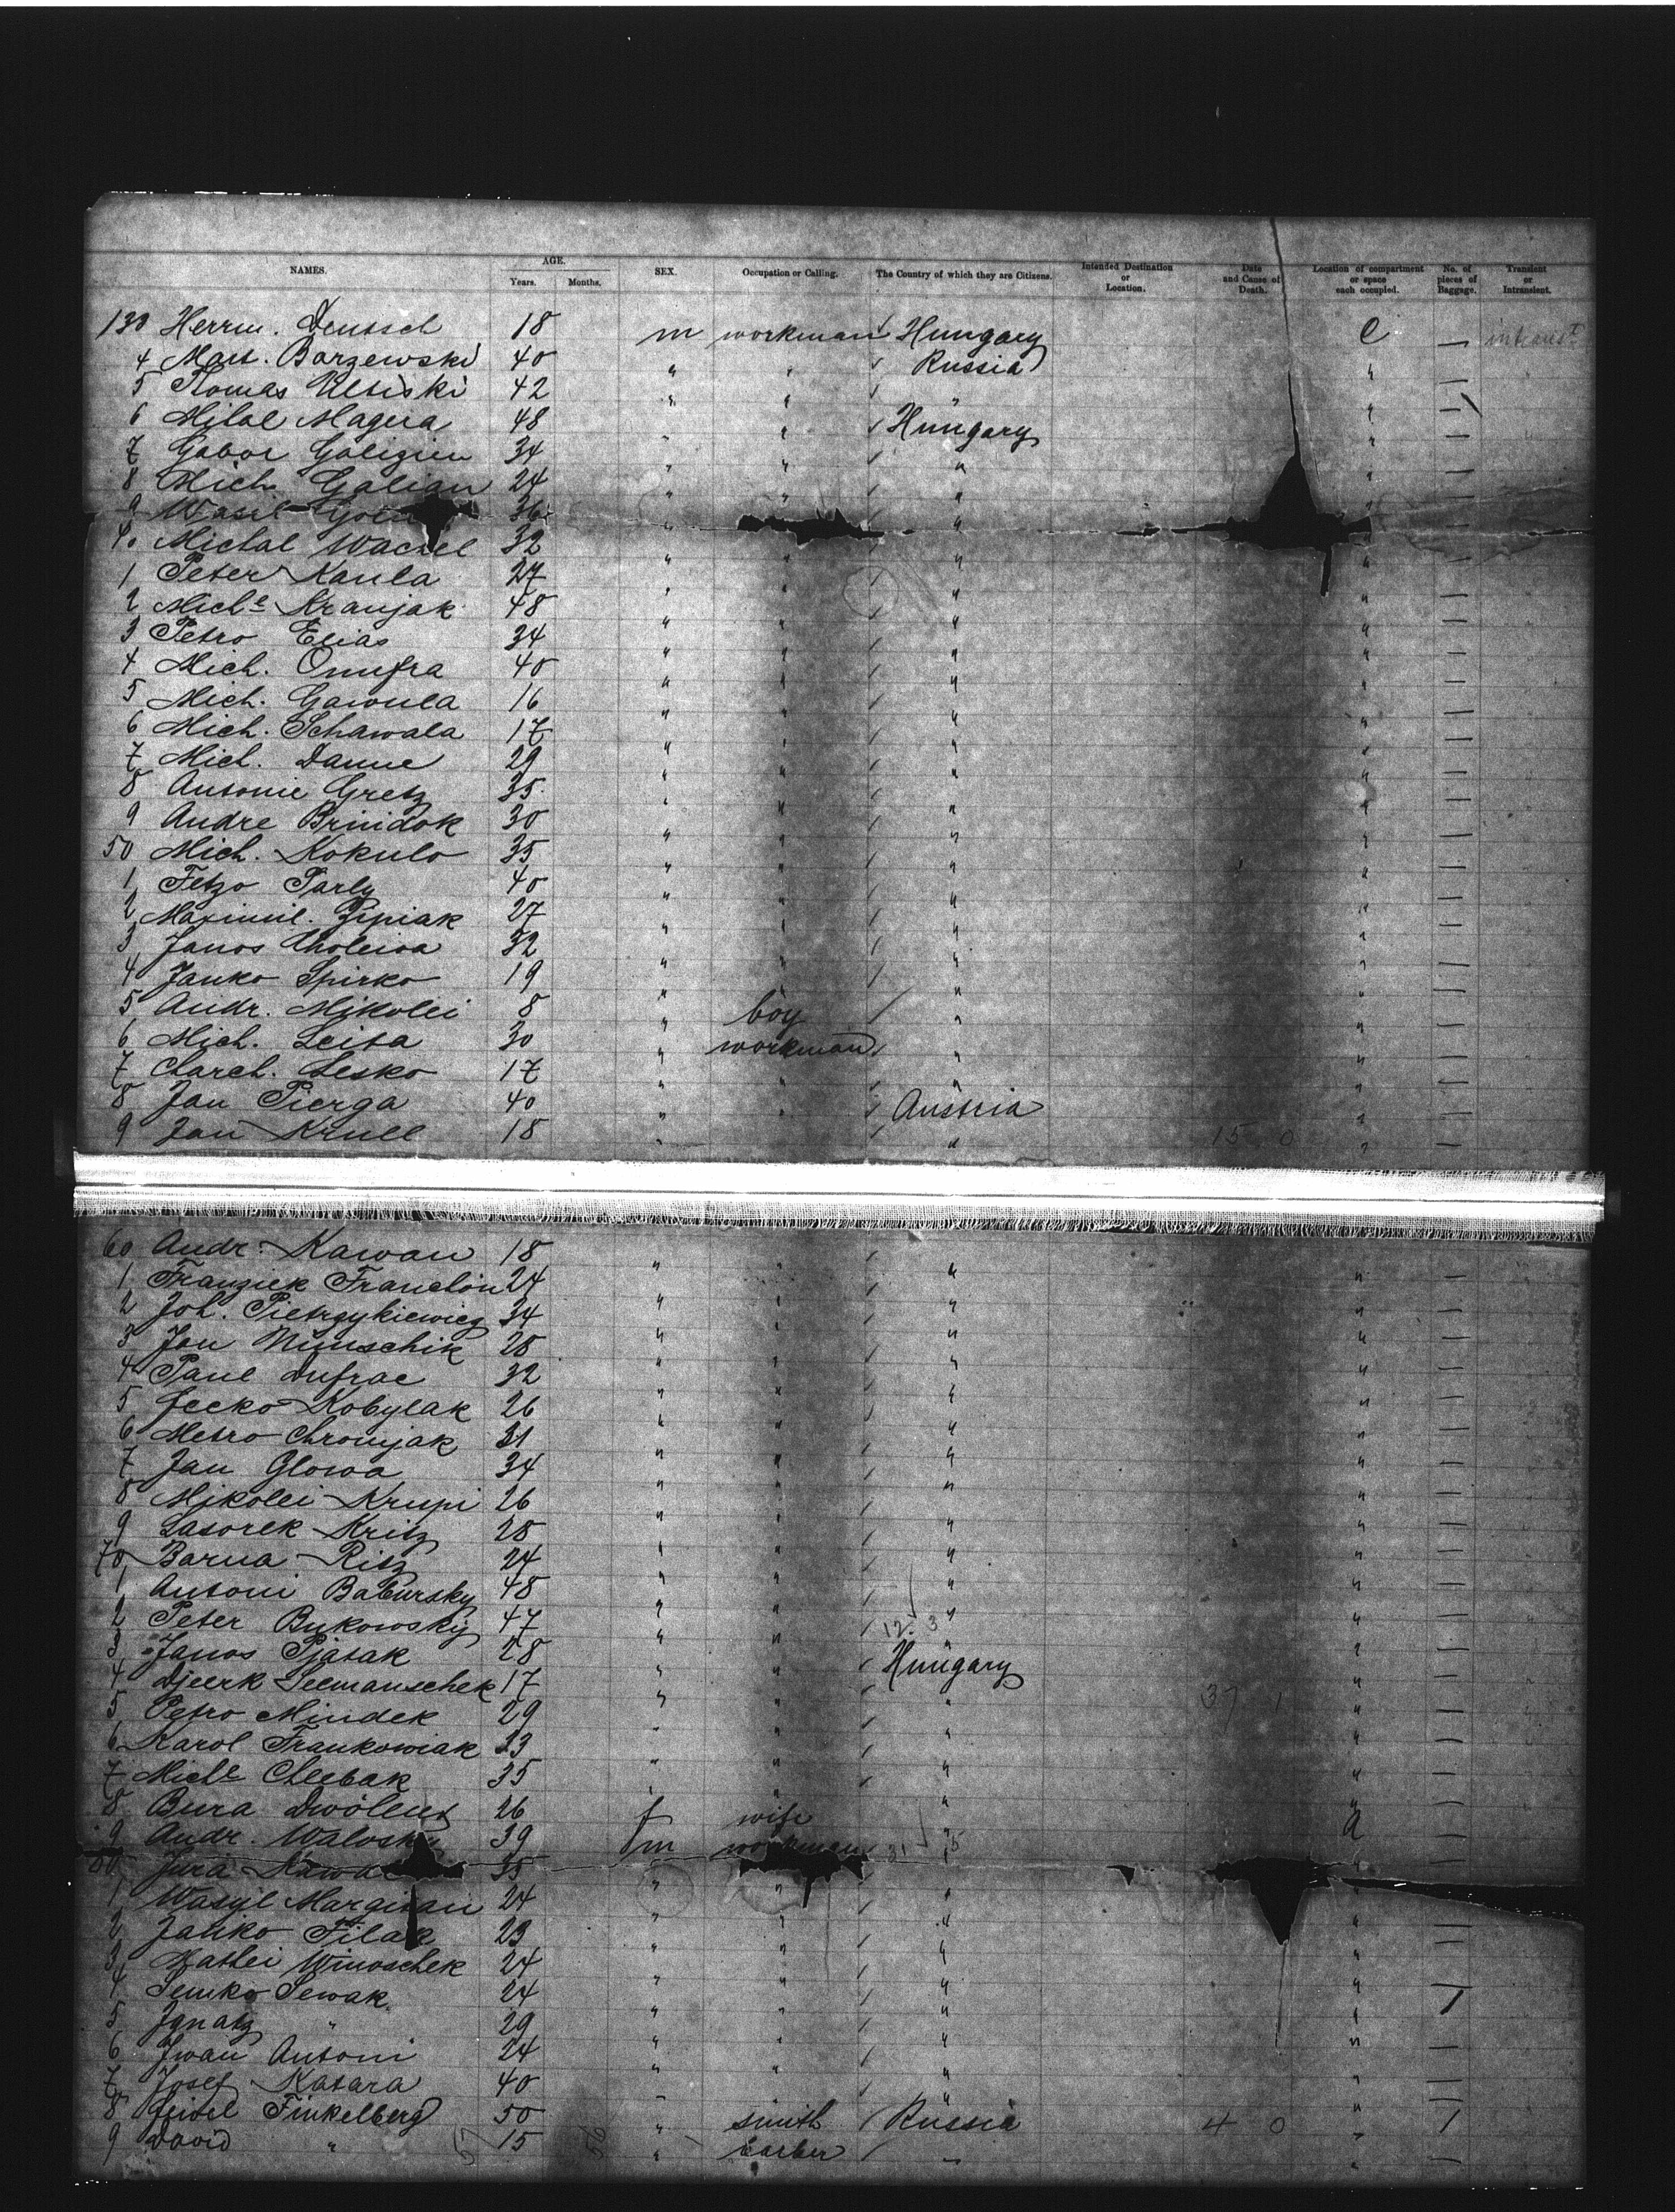 NAMES. AGE. Years. Months. SEX. Occupation or Calling. The Country of which they are Citizens. Intended Destination or Location. Date and Cause of Death. Location of compartment or space each occupied. No. of pieces of Baggage. Transient or Intransient.
Herrm. Deutsch 18 m workman Hungary C —
4 Mart. Barzewski 40 " " Russia " —
5 Thomas 42 " " " " —
6 Milal Magera 48 " " Hungary " —
7 Gabor 34 " " " " —
8 Mich. Galian 24 " " " " —
9 Wasil 36 " " " —
40 Michal 32 " " " " —
1 Peter Kaula 27 " " " " —
2 Michl Kranjak 48 " " " " —
3 Petro Elias 34 " " " " —
4 Mich. Onufra 40 " " " " —
5 Mich. Gawula 16 " " " " —
6 Mich. Schawala 17 " " " " —
7 Mich. Danne 29 " " " " —
8 Antonie Gretz 35 " " " " —
9 Andre Brindok 30 " " " " —
50 Mich. Kokulo 35 " " " " —
1 Fetzo Parly 40 " " " " —
2 Maximil. Zipiak 27 " " " " —
3 Janos 32 " " " " —
4 Janko Spirko 19 " " " " —
5 Andr. Mikolei 8 " boy " " —
6 Mich. Leita 30 " workman " " —
7 Lesko 17 " " " " —
8 Jan Pierga 40 " " Austria " —
9 Jan Krull 18 " " " 15 0 " —
60 Andr. Kawan 18 " " " " —
1 Franziek 24 " " " " —
2 Joh. Pietrzykiewicz 34 " " " " —
3 Jan 28 " " " " —
4 Paul Dufrac 32 " " " " —
5 Fecko Kobylak 26 " " " " —
6 Metro Chronjak 31 " " " " —
7 Jan Glowa 34 " " " " —
8 Mikolei Krupi 26 " " " " —
9 Lasorek Kritz 28 " " " " —
70 Barna Ritz 24 " " " " —
1 Antoni Babursky 48 " " " " —
2 Peter Bukowsky 47 " " 12. 3 " " —
3 Janos Pjatak 28 " " Hungary " —
4 Djeerk Seemanschek 17 " " " 37 1 " —
5 Petro Mindek 29 " " " " —
6 Karol Frankowiak 23 " " " " —
7 Michl Cleebak 35 " " " " —
8 Bura 26 f wife " a —
9 Andr. 39 m workman 31 5 " —
80 Jura 35 " " " " —
1 Wasyl Margitan 24 " " " " —
2 Janko Filak 23 " " " " —
3 Mathei Winoschek 24 " " " " —
4 Semko Sewak 24 " " " " 1
5 Ignatz " 29 " " " " —
6 Iwan Antoni 24 " " " " —
7 Josef Katara 40 " " " " —
8 Finkelberg 50 " smith Russia 4 0 " 1
9 David " 15 " barber " " —